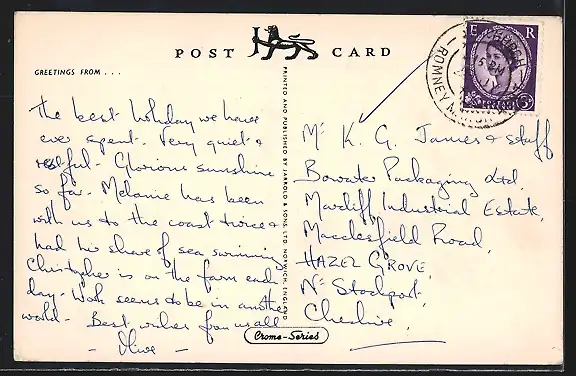 POST CARD
GREETINGS FROM . . .
The best holiday we have
ever spent. Very quiet &
restful. Glorious sunshine
so far. Melanie has been
with us to the coast twice &
had his share of sea swimming
Christopher is on the farm each
day. Work seems to be in another
world. Best wishes from us all
- Olive -
PRINTED AND PUBLISHED BY JARROLD & SONS, LTD. NORWICH, ENGLAND
Crome-Series
E R
3D
ROMNEY MARSH
Mr K. G. James & staff
Bowater Packaging Ltd,
Mardiff Industrial Estate,
Macclesfield Road,
HAZEL GROVE,
Nr Stockport,
Cheshire,